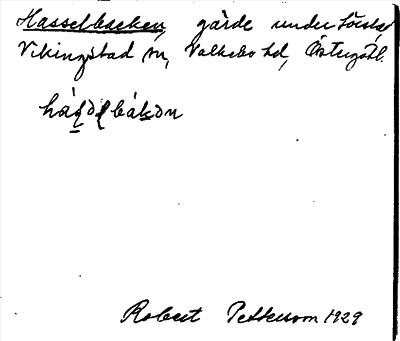 Hasselbacken, gärde under Löcstad
Vikingstad sn, Valkebo hd, Östergötl.
háʂəɭbákən
Robert Pettersson 1929